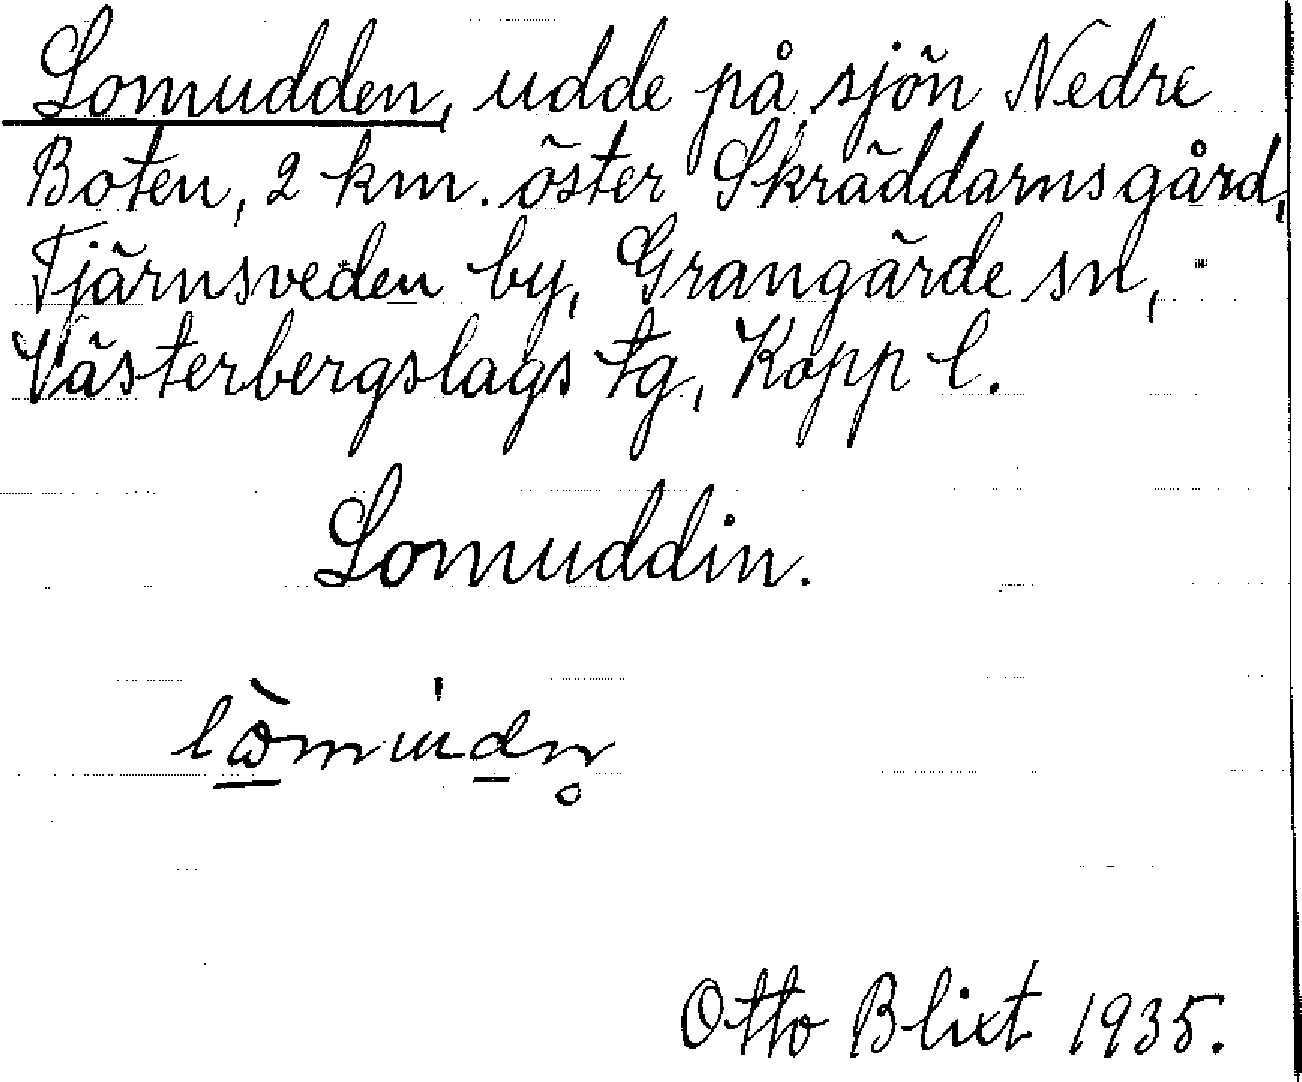 Lomudden, udde på sjön Nedre
Boten, 2 km. öster Skräddarnsgård,
Tjärnsveden by, Grangärde sn,
Västerbergslags tg, Kopp l.
Lomuddin.
Otto Blixt 1935.